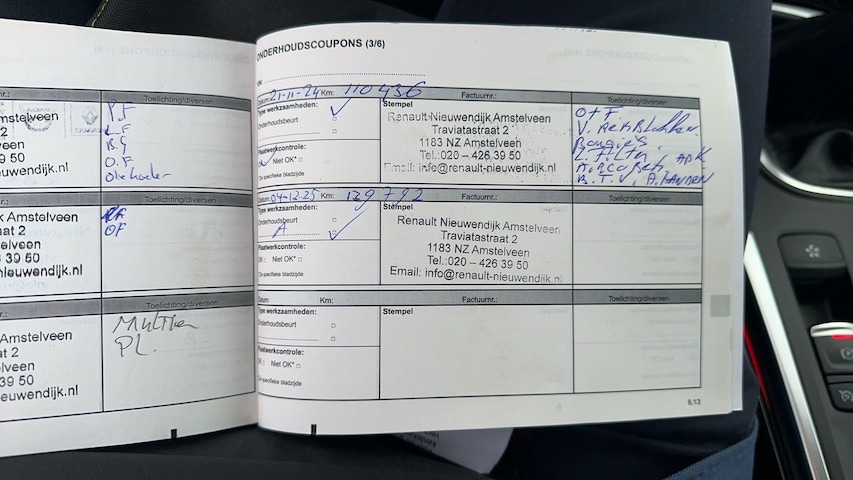 Toelichting/diversen
mstelveen
P.F
2
L.F
B.G
O.F
nieuwendijk.nl
Toelichting/diversen
k Amstelveen
at 2
OF
elveen
6 39 50
nieuwendijk.nl
Toelichting/diversen
Amstelveen
at 2
PL.
lveen
39 50
euwendijk.nl
ONDERHOUDSCOUPONS (3/6)
Datum: 21-11-24 Km: 110436 Factuurnr.: Toelichting/diversen
Type werkzaamheden:
Onderhoudsbeurt
Plaatwerkcontrole:
Niet OK*
*Zie specifieke bladzijde
Stempel
Renault-Nieuwendijk Amstelveen
Traviatastraat 2
1183 NZ Amstelveen
Tel.:020 – 426 39 50
Email: info@renault-nieuwendijk.nl
O+F.
V. Remblokken.
Bougie's.
L.Filter, APK
B.T.V,
Datum: 04-12-25 Km: 139792 Factuurnr.: Toelichting/diversen
Type werkzaamheden:
Onderhoudsbeurt
A
Plaatwerkcontrole:
OK Niet OK*
*Zie specifieke bladzijde
Stempel
Renault Nieuwendijk Amstelveen
Traviatastraat 2
1183 NZ Amstelveen
Tel.:020 – 426 39 50
Email: info@renault-nieuwendijk.nl
Datum: Km: Factuurnr.: Toelichting/diversen
Type werkzaamheden:
Onderhoudsbeurt
Plaatwerkcontrole:
OK Niet OK*
*Zie specifieke bladzijde
Stempel
6.13